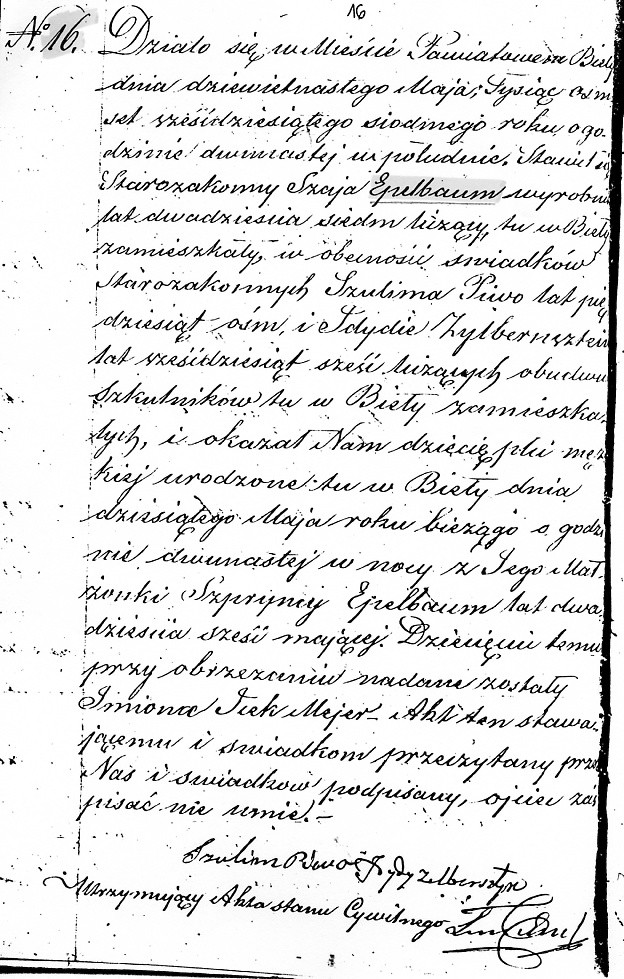 16
No 16. Działo się w Mieście Powiatowem Biely
dnia dziewietnastego Maja, Tysiąc osm
set sześćdziesiątego siodmego roku o go
dzinie dwunastej w południe. Stawił się
Starozakonny Szaja Epelbaum wyrobnik
lat dwadzieścia siedm liczący, tu w Biely
zamieszkały, w obecności swiadków
Starozakonnych Szulima Piwo lat pię
dziesiąt ośm, i Zylbersztein
lat sześćdziesiąt sześć liczących obudwu
Szkulników tu w Bieły zamieszka-
łych, i okazał Nam dziecię płci męz
kiej urodzone tu w Bieły dnia
dziesiątego Maja roku bieżącgo o godzi
nie dwunastej w nocy z Jego Mał-
żonki Szprymy Epelbaum lat dwa-
dzieścia sześć mającej. Dziecięciu temu
przy obrzezaniu nadane zostały
Imiona Icek Mejer – Akt ten stawa-
jącemu i swiadkom przeczytany prze
Nas i swiadkow podpisany, ojciec zaś
pisać nie umie. –
Szulim Piwo
Utrzymujący Akta stanu Cywilnego